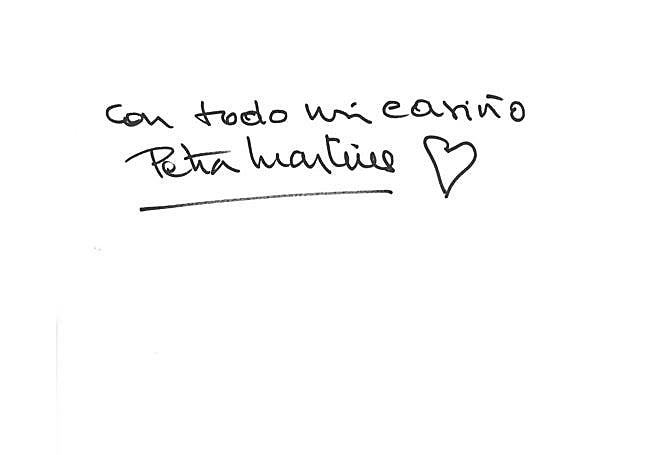 con todo mi cariño
Petra Martínez